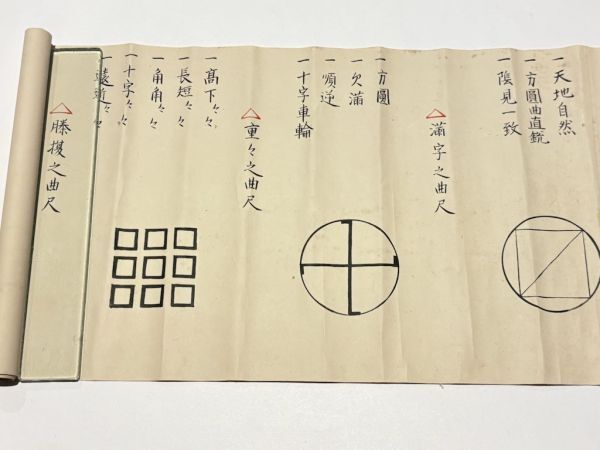 一 天地自然
一 方圓曲直鋭
一 陰見一致
△ 滿字之曲尺
一 方圓
一 欠滿
一 順逆
一 十字車輪
△ 重々之曲尺
一 高下々々
一 長短々々
一 角角々々
一 十字々々
一 遠近々々
△ 勝援之曲尺